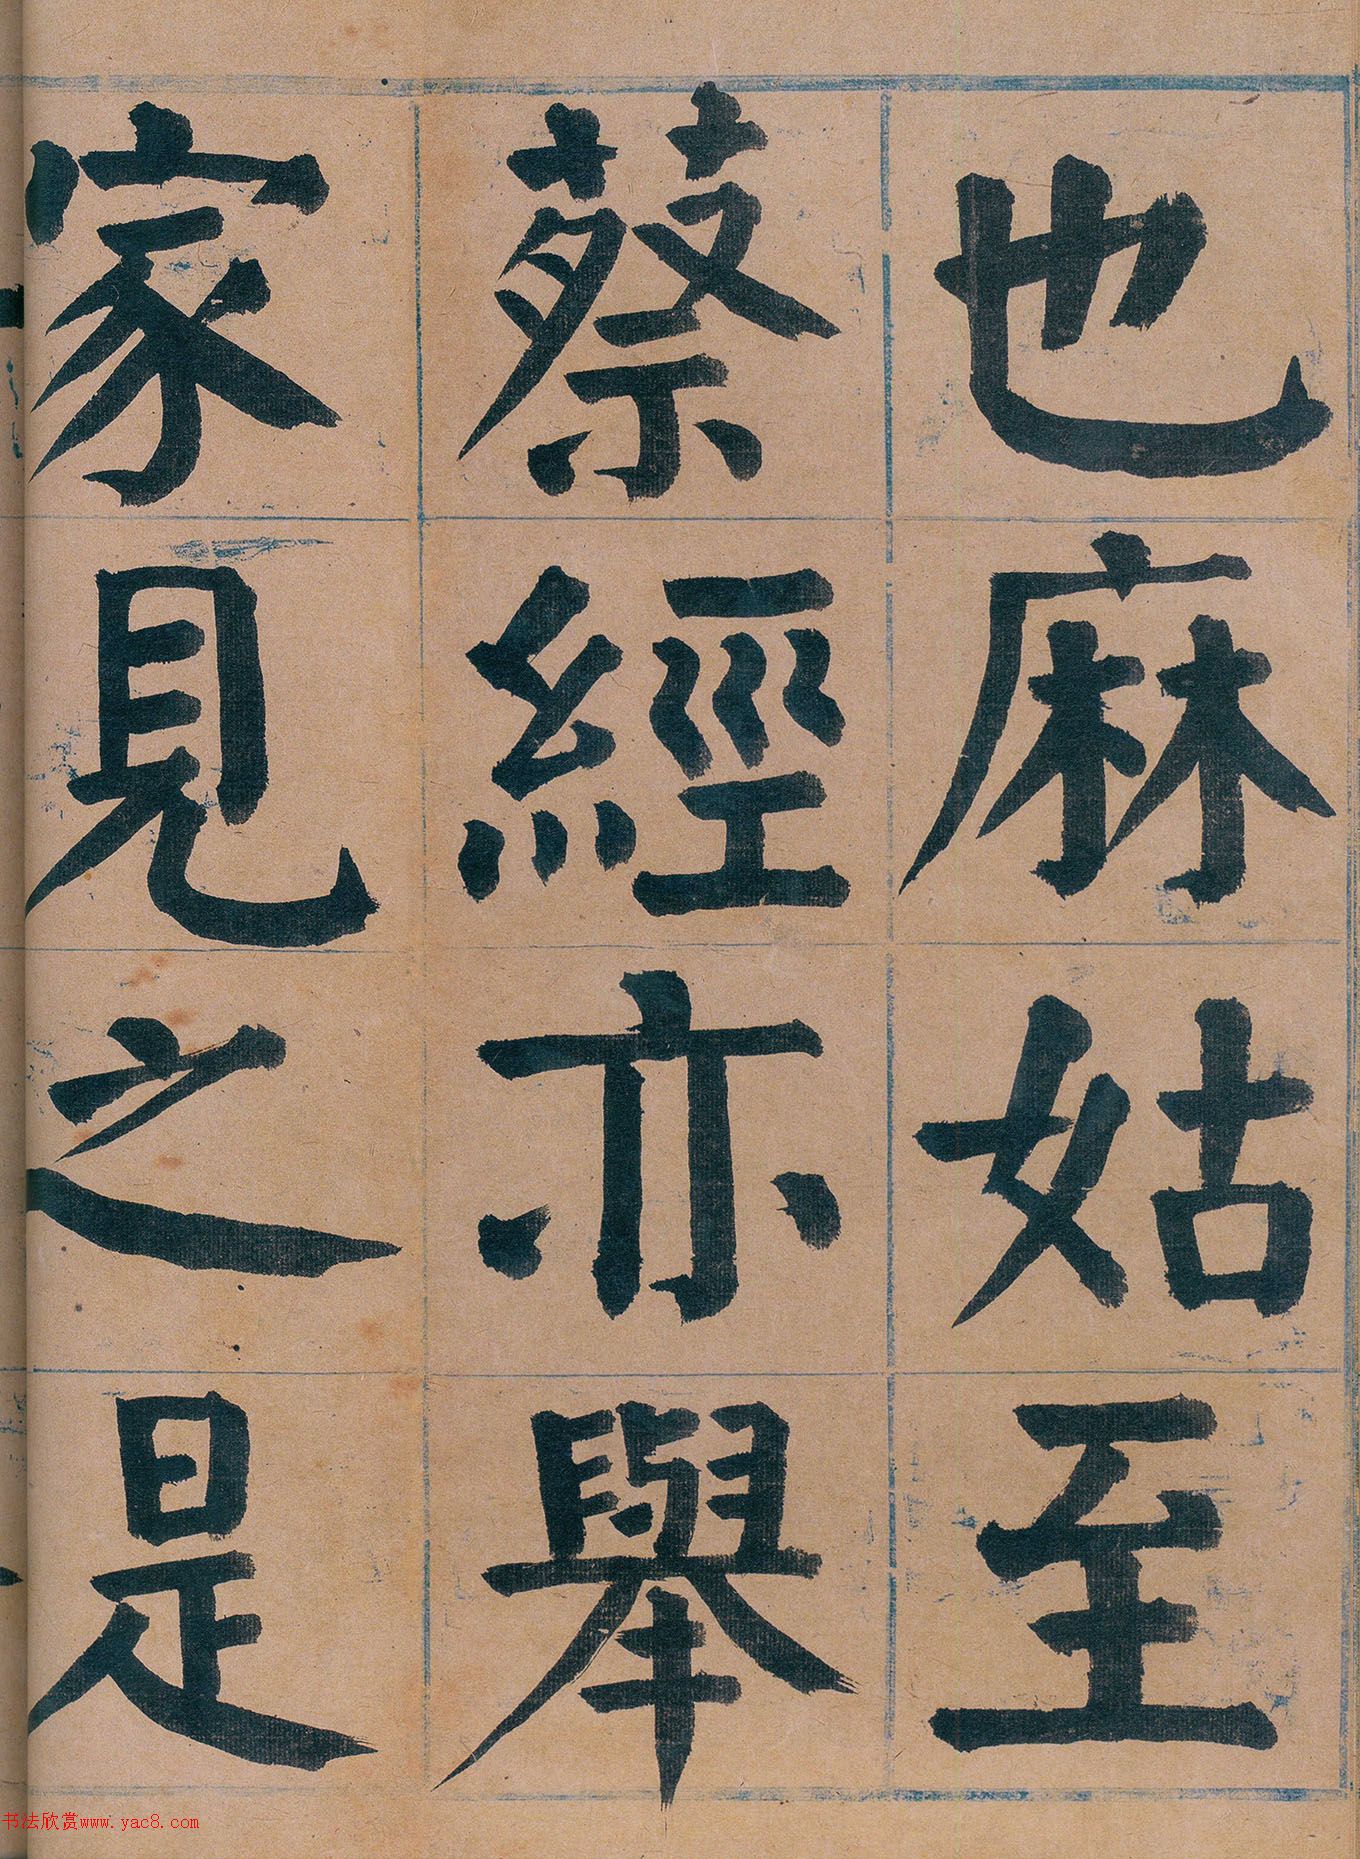 也麻姑至
蔡經亦舉
家見之是
书法欣赏www.yac8.com